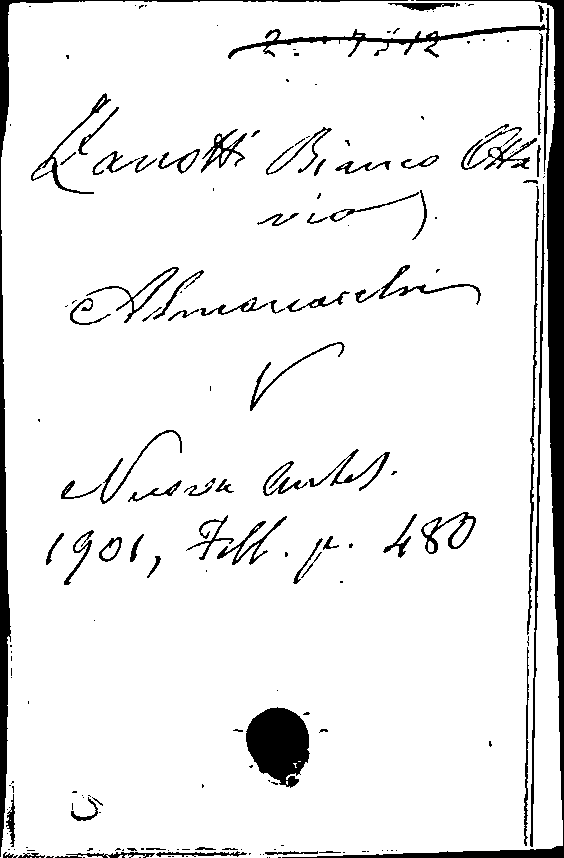 Zanotti Bianco Otta-
vio
Almanacchi
V
Nuova Antol.
1901, Febb. p. 480